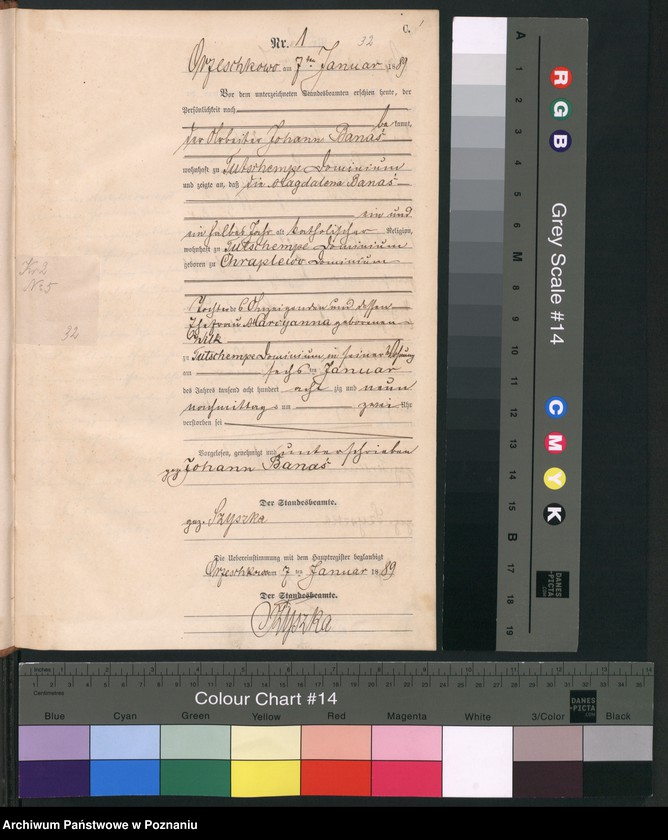 C.
Nr. 1
32
Orzeschkowo am 7ten Januar 1889
Vor dem unterzeichneten Standesbeamten erschien heute, der
Persönlichkeit nach
bekannt,
der Arbeiter Johann Banaś
wohnhaft zu Tutschempe Dominium
und zeigte an, daß die Magdalena Banaś
ein und
ein halbes Jahr alt katholischer Religion,
wohnhaft zu Tutschempe Dominium
geboren zu Chraplewo Dominium
Tochter des Anzeigenden und dessen
Ehefrau Maryanna geborenen
zu Tutschempe Dominium in seiner Wohnung
am sechsten Januar
des Jahres tausend acht hundert acht zig und neun
nachmittags um zwei Uhr
verstorben sei
Vorgelesen, genehmigt und unterschrieben
gez. Johann Banaś
Der Standesbeamte.
gez. Szyszka
Die Uebereinstimmung mit dem Hauptregister beglaubigt
Orzeschkowo am 7ten Januar 1889
Der Standesbeamte.
Szyszka
No 5
32
Grey Scale #14
R G B
C M Y K
A 1 2 3 4 5 6 M 8 9 10 11 12 13 14 15 B 17 18 19
DANES
-PICTA
.COM
Inches
Centimetres
Colour Chart #14
DANES
-PICTA
.COM
Blue Cyan Green Yellow Red Magenta White 3/Color Black
Archiwum Państwowe w Poznaniu